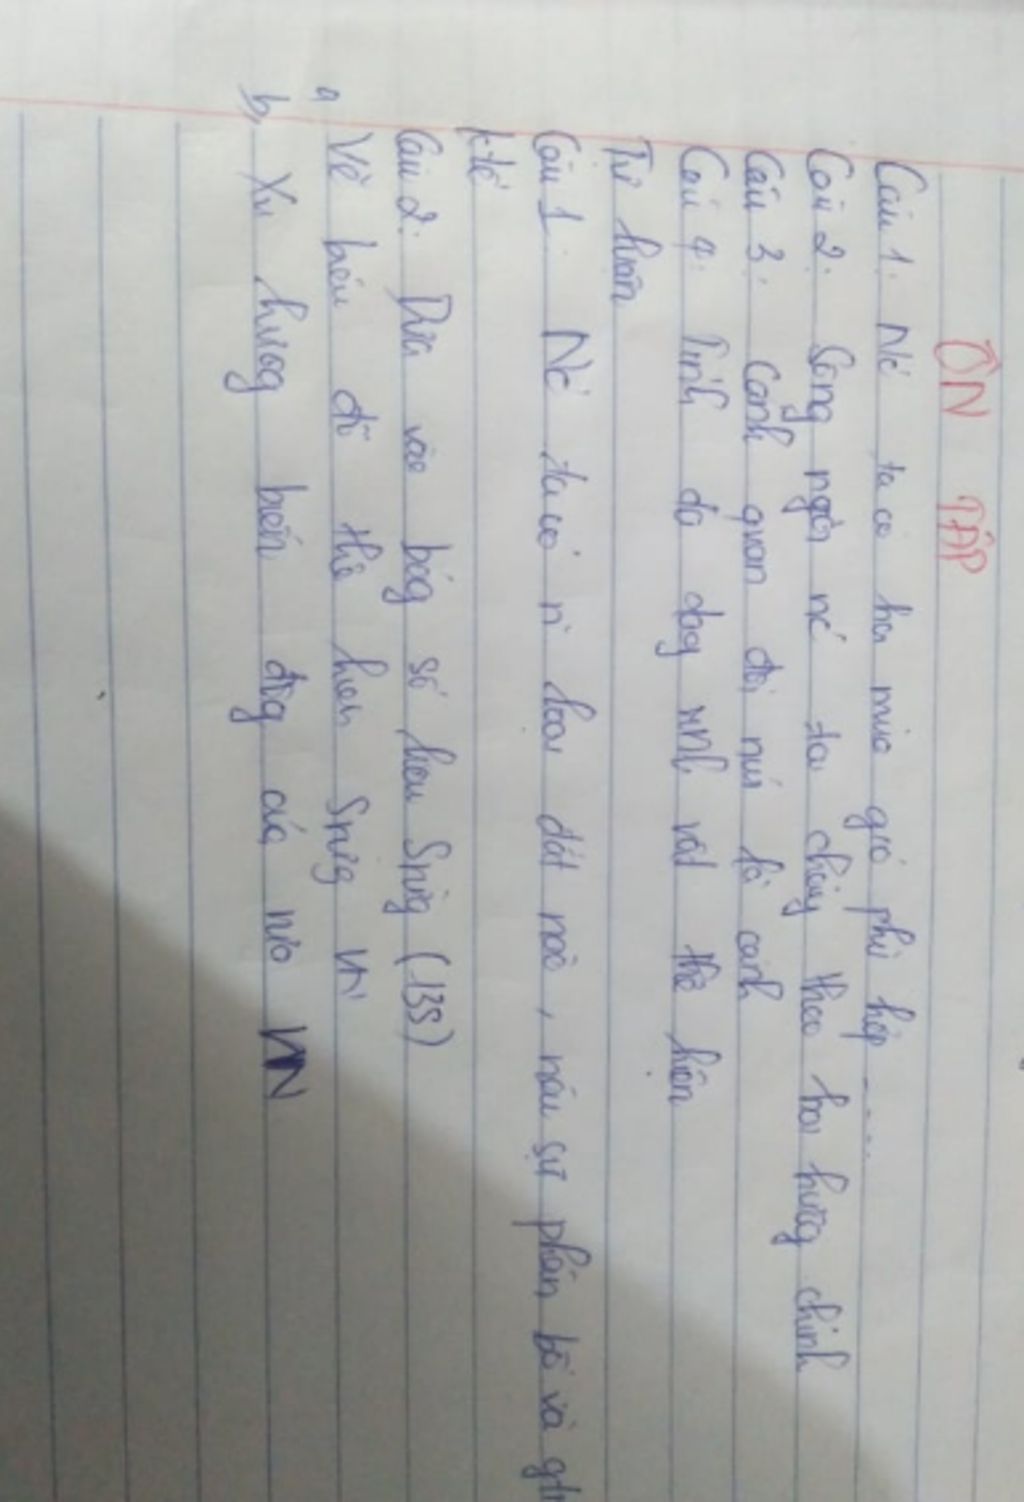 ÔN TẬP
Câu 1. Nc ta có hai mùa gió phù hợp ....
Câu 2. Sông ngòi nc ta chảy theo hai hướng chính
Câu 3. Cảnh quan đồi núi là cảnh
Câu 4. Tính đa dạg sinh vật thể hiện
Tự luận
Câu 1. Nc ta có n~ loại đất nào, nêu sự phân bố và gtrị
ktế
Câu 2. Dựa vào bảg số liệu Srừng (135)
a Vẽ biểu đồ thể hiện Srừng VN
b, Xu hướg biến độg của nó VN